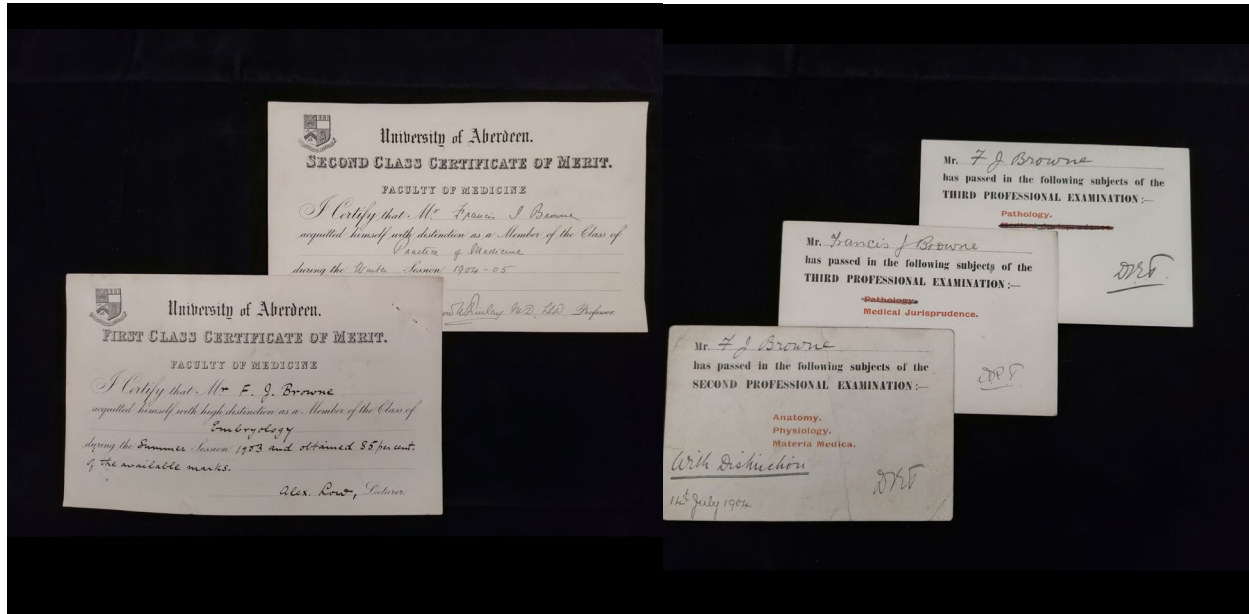 University of Aberdeen.
SECOND CLASS CERTIFICATE OF MERIT.
FACULTY OF MEDICINE
I Certify that Mr Francis J Browne
acquitted himself with distinction as a Member of the Class of
Practice of Medicine
during the Winter Session 1904-05
Finlay M.D. LLD Professor.
University of Aberdeen.
FIRST CLASS CERTIFICATE OF MERIT.
FACULTY OF MEDICINE
I Certify that Mr F. J. Browne
acquitted himself with high distinction as a Member of the Class of
Embryology
during the Summer Session 1903 and obtained 85 per cent.
of the available marks.
Alex. Low, Lecturer
Mr. F J Browne
has passed in the following subjects of the
THIRD PROFESSIONAL EXAMINATION:—
Pathology.
Medical Jurisprudence.
Mr. Francis J Browne
has passed in the following subjects of the
THIRD PROFESSIONAL EXAMINATION:—
Pathology.
Medical Jurisprudence.
Mr. F J Browne
has passed in the following subjects of the
SECOND PROFESSIONAL EXAMINATION:—
Anatomy.
Physiology.
Materia Medica.
With Distinction
14th July 1904